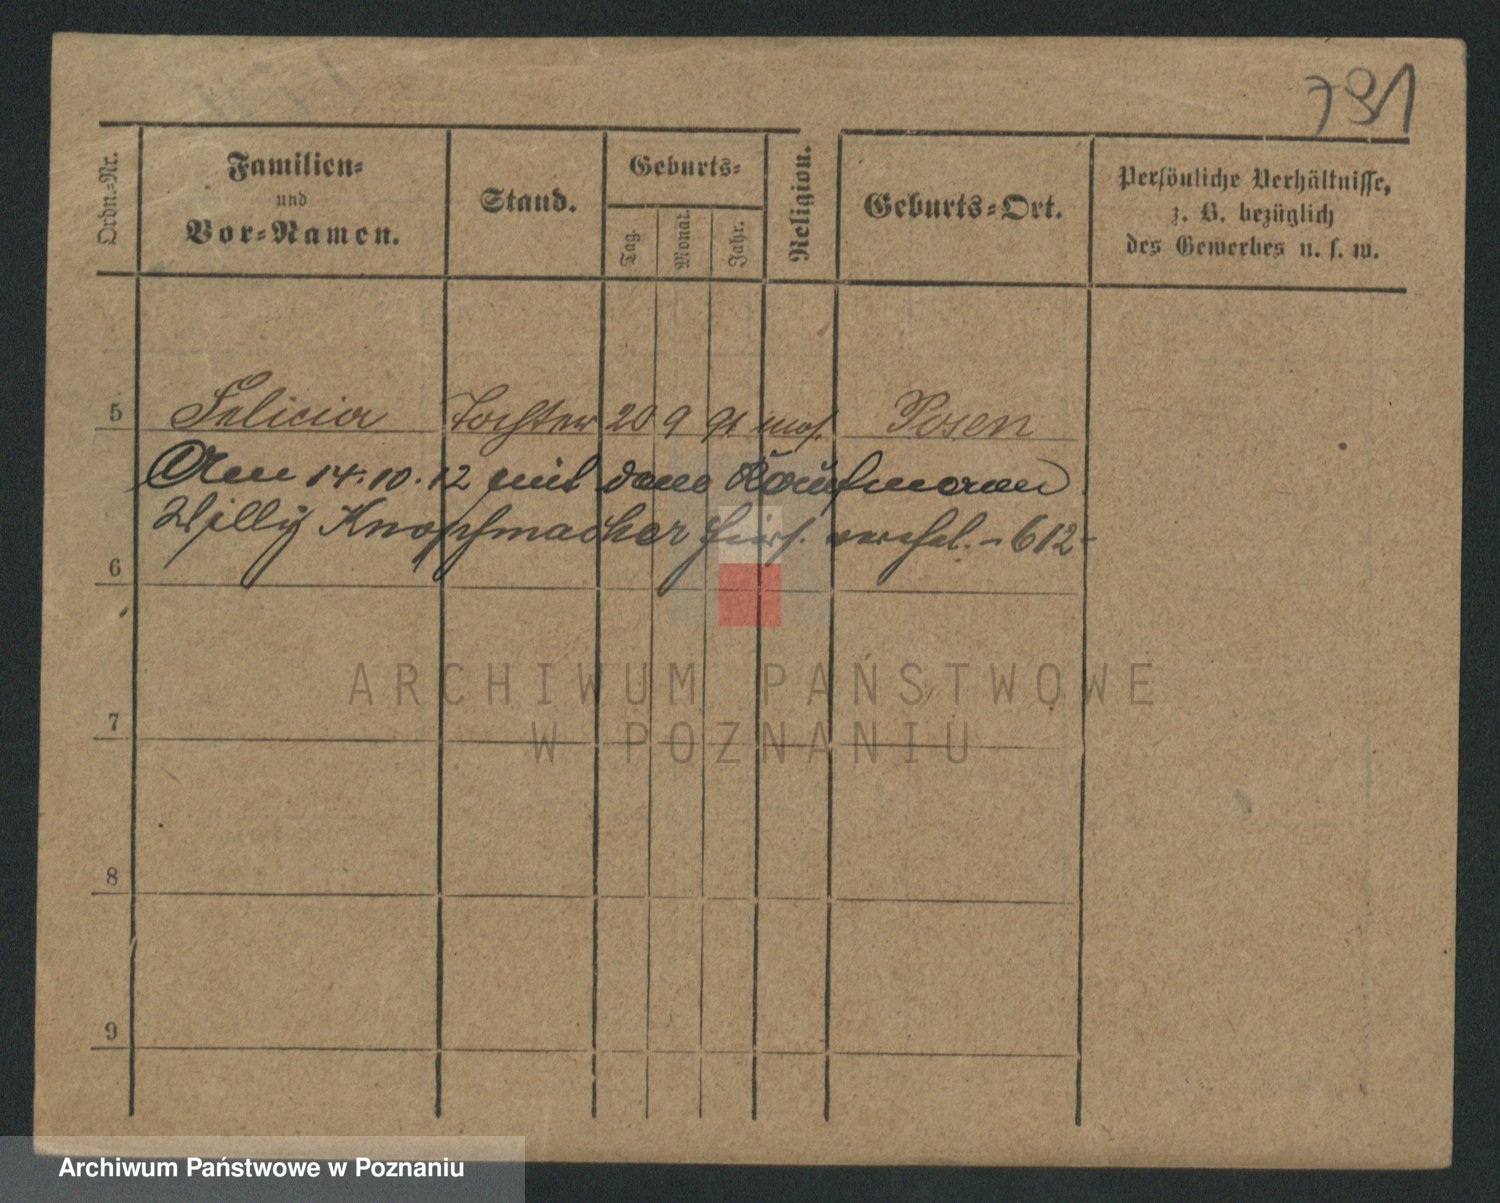 791
Ordn.=Nr.
Familien=
und
Vor=Namen.
Stand.
Geburts=
Tag.
Monat.
Jahr.
Religion.
Geburts=Ort.
Persönliche Verhältnisse,
z. B. bezüglich
des Gewerbes u. s. w.
5 Felicia Tochter 20 9 91 mos. Posen
Am 14.10.12 mit dem Kaufmann
Willy Knopfmacher hirs. verehel. - 612 -
6
7
8
9
ARCHIWUM PAŃSTWOWE
W POZNANIU
Archiwum Państwowe w Poznaniu